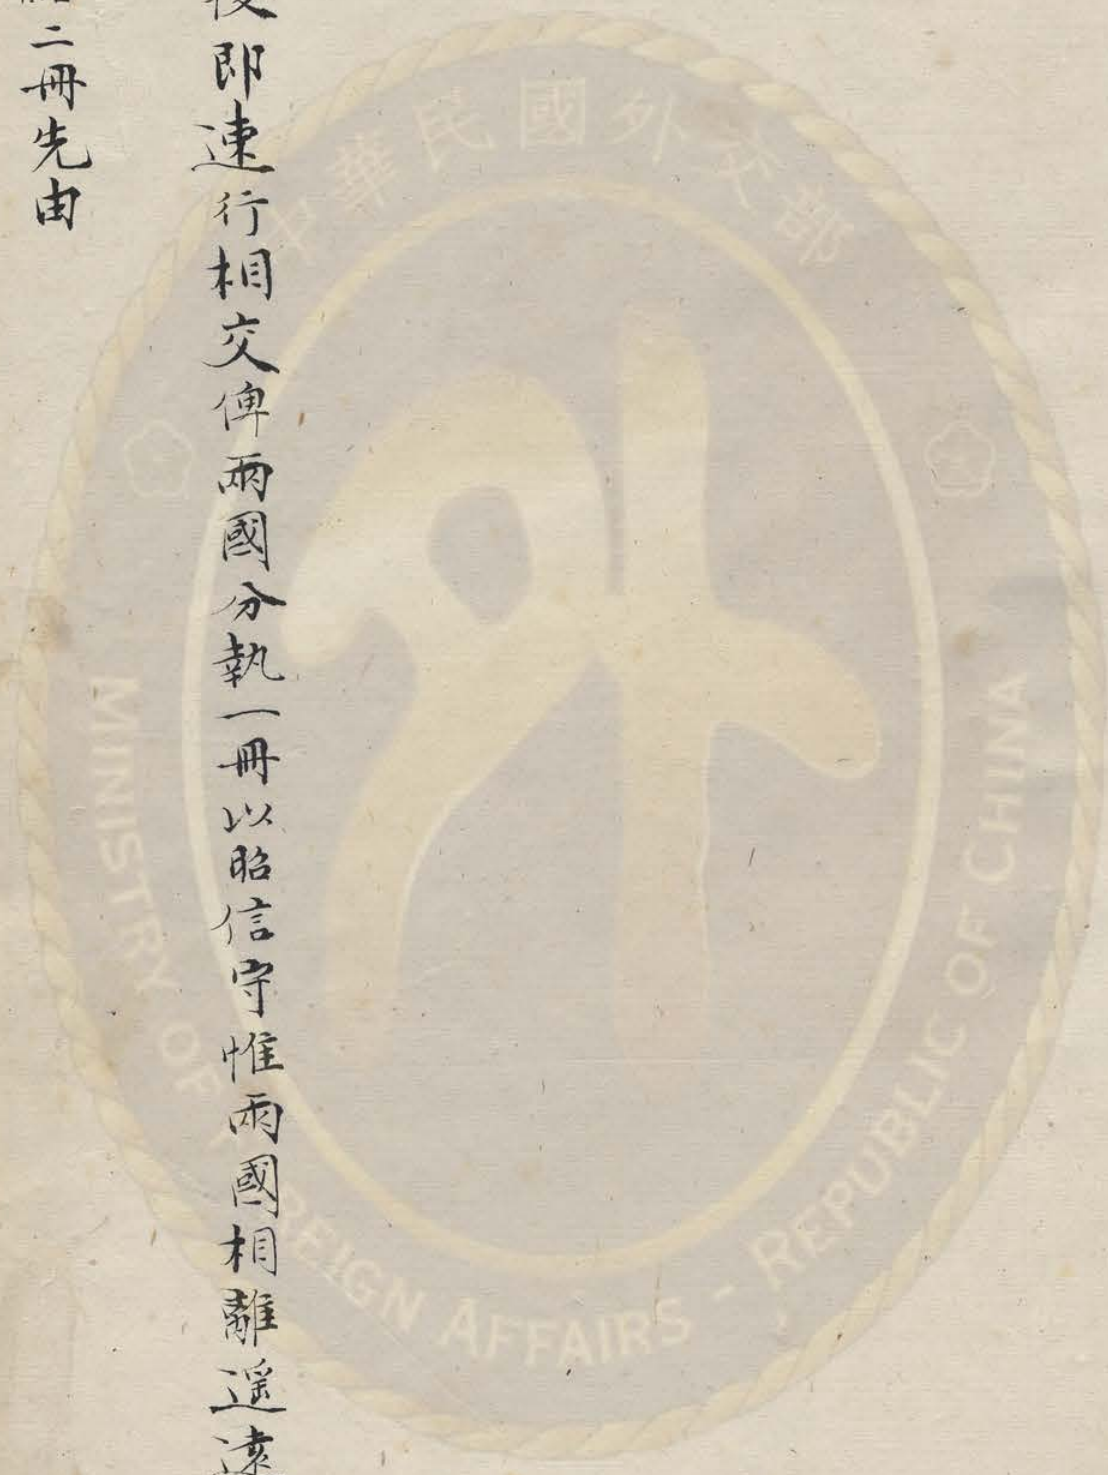 即速行相交俾兩國分執一冊以昭信守惟兩國相離遥遠
二冊先由
中華民國外交部
MINISTRY OF FOREIGN AFFAIRS - REPUBLIC OF CHINA